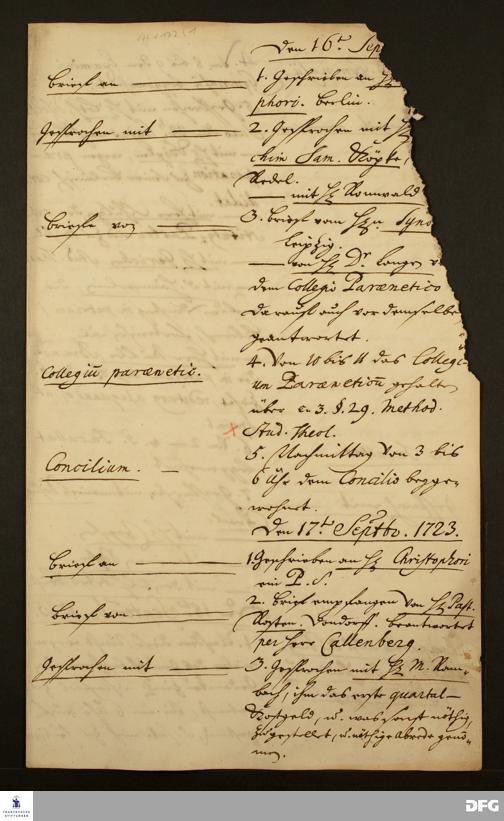 Den 16t. Sep
Briefe an
1. Geschrieben an H
phori. Berlin.
Gesprochen mit
2. Gesprochen mit H
chim Sam. Köpke,
Redel.
— mit H Ronwald
Briefe von
3. Brief vom Hn. Syno
Leipzig.
— von H Dr. Langen v
dem Collegi Paraenetico
darauf auch vor demselbe
geantwortet.
Collegiū paraenetic.
4. Von 10 bis 11 das Collegi-
um Paraeneticū gehalten
über c. 3. §. 29. Method.
Stud. Theol.
Concilium. —
5. Nachmittag von 3 bis
6 Uhr dem Concilio beyge-
wohnet.
Den 17t. Septbr. 1723.
Briefe an
1. Geschrieben an H Christophori
ein P. S.
Briefe von
2. Brief empfangen von H Past.
Kosten. Dondorff. beantwortet
per Herr Callenberg.
Gesprochen mit
3. Gesprochen mit H M. Ram-
bach, ihm das erste quartal-
Kostgeld, u. was sonst nöthig,
zugestellet, u. nöthige Abrede genom-
men.
FRANCKESCHE
STIFTUNGEN
DFG